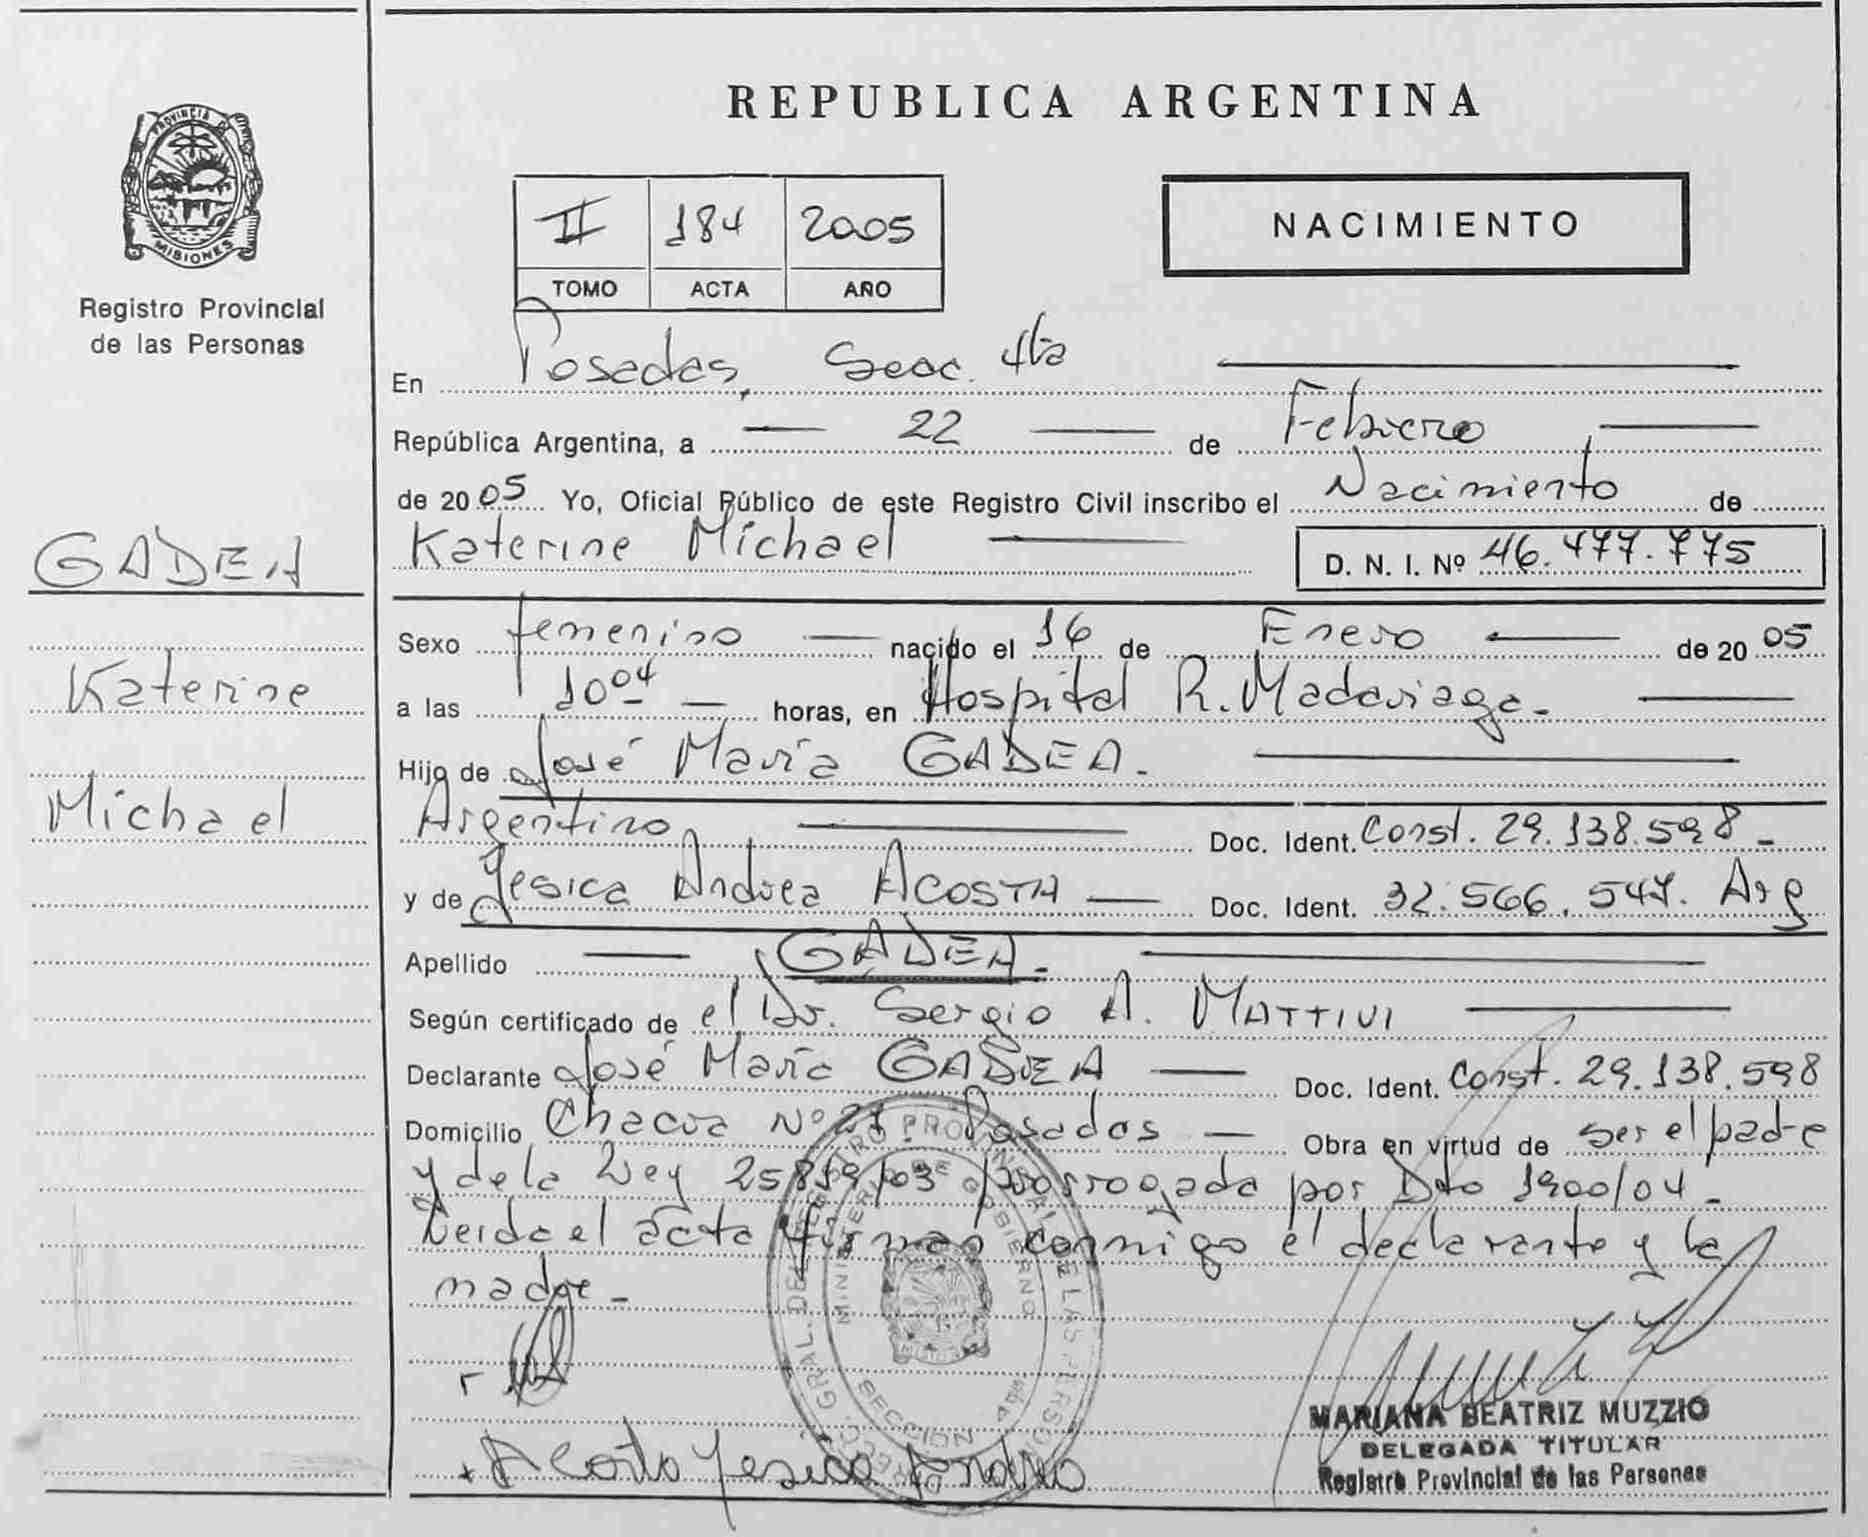 REPUBLICA ARGENTINA
PROVINCIA DE
MISIONES
Registro Provincial
de las Personas
II 184 2005
TOMO ACTA AÑO
NACIMIENTO
En Posadas, Secc. 4ta
República Argentina, a 22 de Febrero
de 2005 Yo, Oficial Público de este Registro Civil inscribo el Nacimiento de
Katerine Michael D. N. I. Nº 46.477.775
GADEA
Katerine
Michael
Sexo femenino nacido el 16 de Enero de 2005
a las 10 04 horas, en Hospital R. Madariaga.
Hijo de José María GADEA.
Argentino Doc. Ident. Const. 29.138.598
y de Yesica Andrea ACOSTA Doc. Ident. 32.566.547. Arg
Apellido GADEA.
Según certificado de el Dr. Sergio A. MATTIVI
Declarante José María GADEA Doc. Ident. Const. 29.138.598
Domicilio Chacra Nº 27. Posadas Obra en virtud de ser el padre
y de la Ley 25819/03 prorrogada por Dto 1900/04
Leida el acta firman conmigo el declarante y la
madre
Acosta Yesica Andrea
MARIANA BEATRIZ MUZZIO
DELEGADA TITULAR
Registro Provincial de las Personas
MINISTERIO DE GOBIERNO
SECCION 4ta